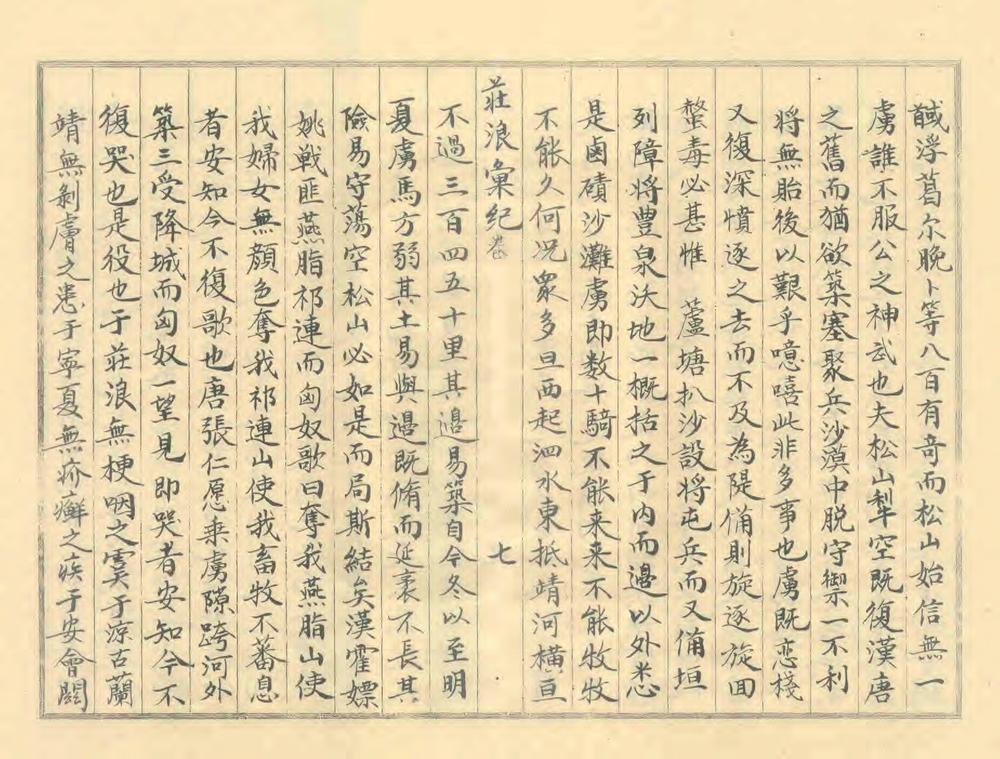 馘浮葛尔晚卜等八百有奇而松山始信無一
虜誰不服公之神武也夫松山犁空既復漢唐
之舊而猶欲築塞聚兵沙漠中脱守禦一不利
將無貽後以艱乎噫嘻此非多事也虜既恋棧
又復深憤逐之去而不及為隄俻則旋逐旋囬
螫毒必甚惟 蘆塘扒沙設將屯兵而又俻垣
列障將豊泉沃地一概括之于内而邉以外悉
是鹵磧沙灘虜即数十騎不能来来不能牧牧
不能久何况衆多旦西起泗水東抵靖河横亘
莊浪彙紀 七
不過三百四五十里其邉易築自今冬以至明
夏虜馬方弱其土易與邉既脩而延袤不長其
險易守蕩空松山必如是而局斯結矣漢霍嫖
姚戰匪燕脂祁連而匈奴歌曰奪我燕脂山使
我婦女無顔色奪我祁連山使我畜牧不蕃息
者安知今不復歌也唐張仁愿乗虜隙跨河外
築三受降城而匈奴一望見即哭者安知今不
復哭也是役也于莊浪無梗咽之虞于凉古蘭
靖無剝膚之患于寧夏無疥癬之疾于安會閼